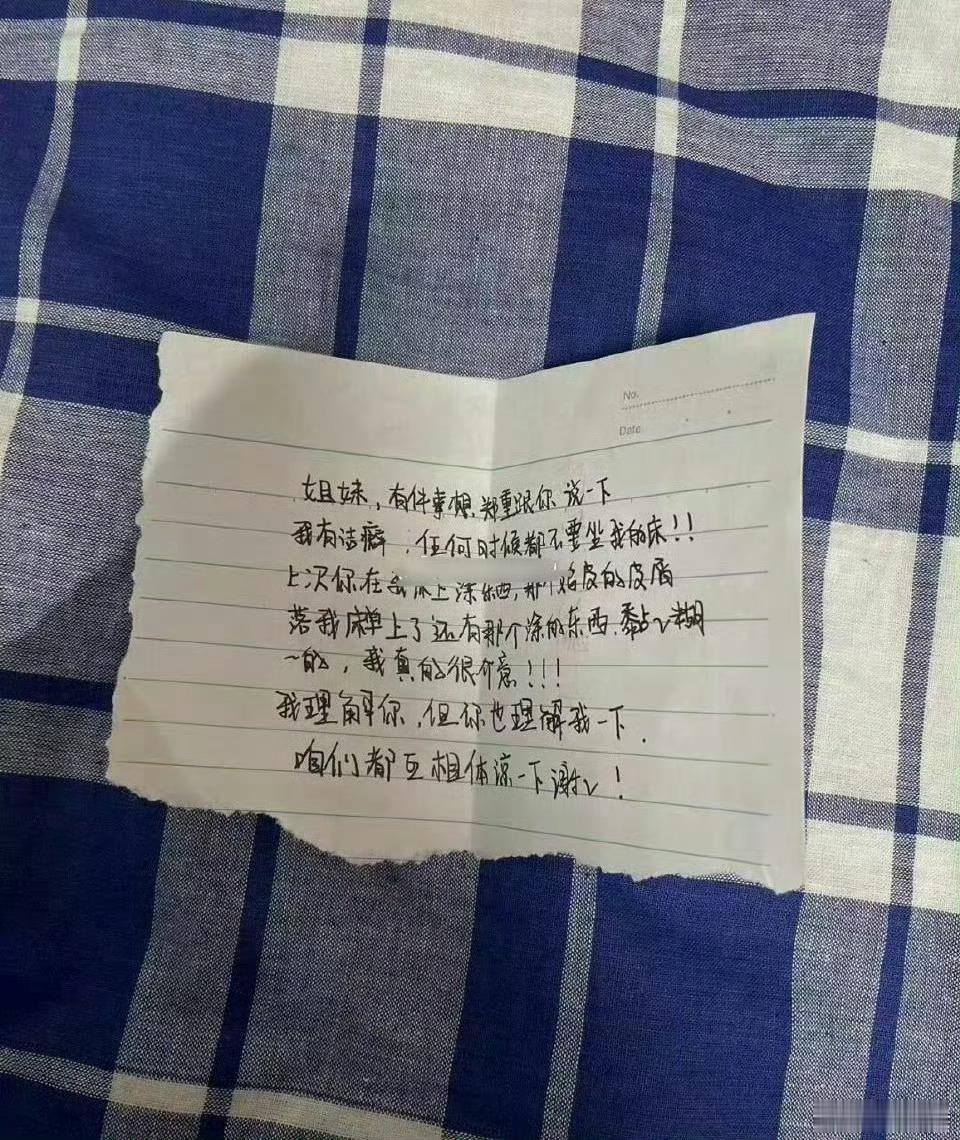 No.
Date
姐妹，有件事想郑重跟你说一下
我有洁癖，任何时候都不要坐我的床！！
上次你在我床上涂东西，那个掐皮的皮屑
落我床单上了还有那个涂的东西，黏〻糊
〻的，我真的很介意！！！
我理解你，但你也理解我一下．
咱们都互相体谅一下谢〻！